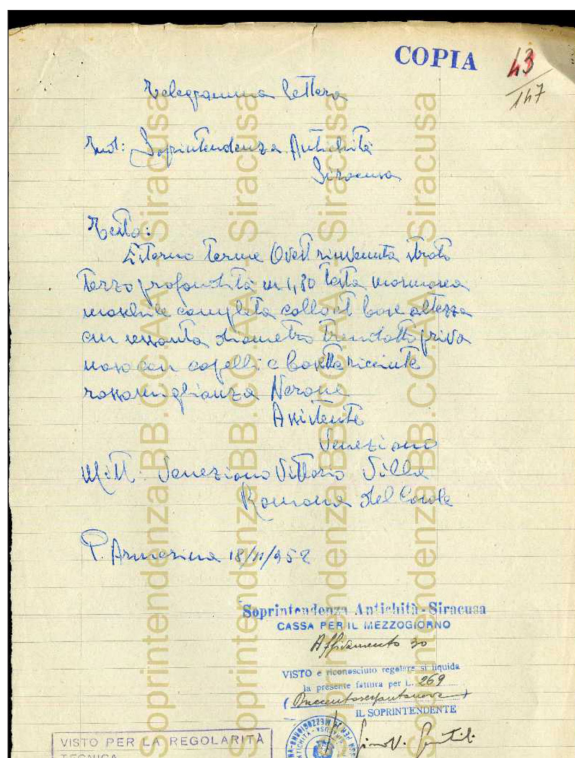 COPIA
43
147
Telegramma lettera
Ind: Soprintendenza Antichità
Siracusa
Testo:
Esterno Terme Ovest rinvenuta strato
terzo profondità m 1,80 testa marmorea
maschile completa collo et base altezza
cm sessanta diametro trendotto priva
naso con capelli e basette ricciute
rassomiglianza Nerone
Assistente
Veneziano
Mitt. Veneziano Vittorio Villa
Romana del Casale
P. Armerina 18/11/952
Soprintendenza Antichità - Siracusa
CASSA PER IL MEZZOGIORNO
Affidamento 30
VISTO e riconosciuto regolare si liquida
la presente fattura per L. 269
(Duecentosessantanove)
IL SOPRINTENDENTE
VISTO PER LA REGOLARITÀ
TECNICA
Soprintendenza BB.CC.AA - Siracusa
Soprintendenza BB.CC.AA - Siracusa
Soprintendenza BB.CC.AA - Siracusa
Soprintendenza BB.CC.AA - Siracusa